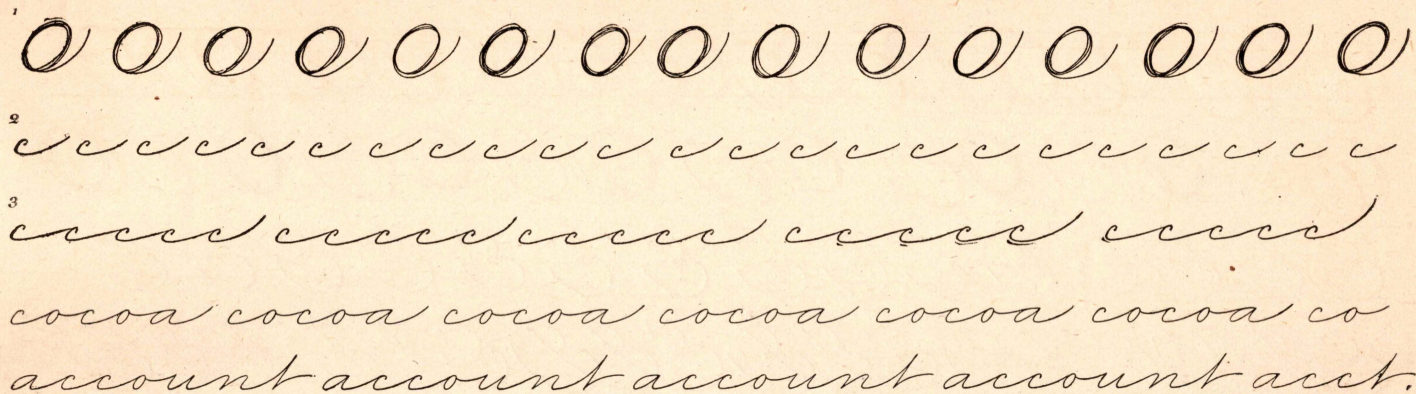 1 O O O O O O O O O O O O O O O
2 c c c c c c c c c c c c c c c c c c c c c c c
3 ccccc ccccc ccccc ccccc ccccc
cocoa cocoa cocoa cocoa cocoa cocoa co
account account account account acct.